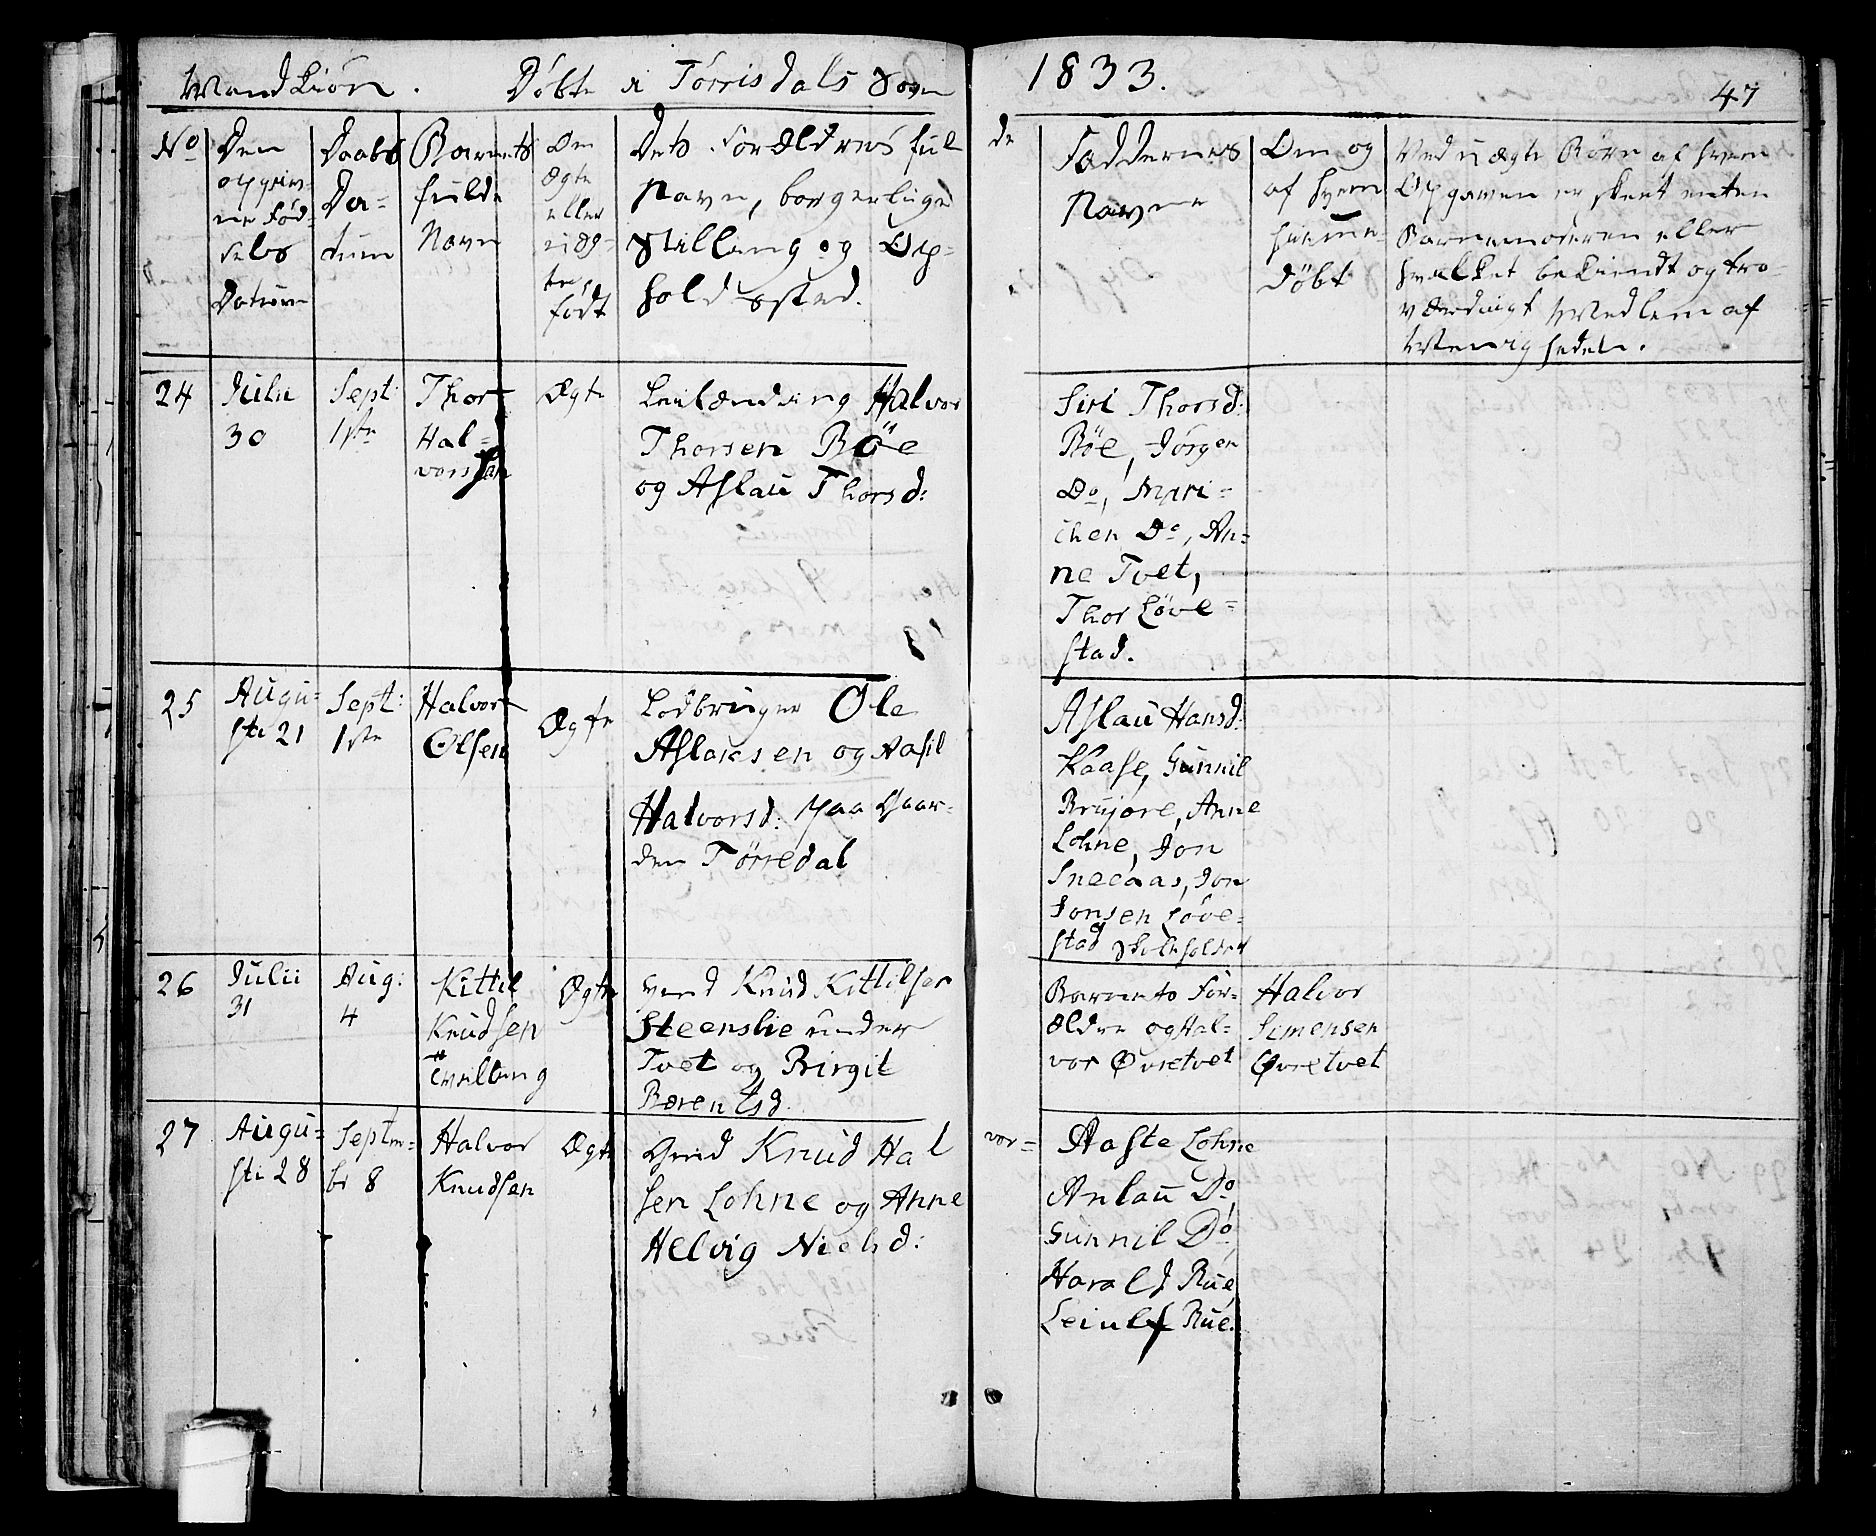 Mandkiön. Döbte i Törrisdals Sogn
1833.
47
No
Den
opgivne
ne Fød-
sels
Datum
Daabs
Da-
tum
Barnets
fulde
Navn
Om
Ægte
eller
uæg-
te
født
Dets Forældres ful de
Navn, borgerlige
Stilling og Op-
holdssted.
Faddernes
Navne
Om og
af hvem
hiemme-
døbt
Ved uægte Børn af hvem
Opgaven er skeet enten
Barnemoderen eller
hvilket bekiendt og tro-
værdigt Medlem af
Menigheden.
24
Julii
30
Sept:
1ste
Thor
Hal-
vorssen
Ægte
Leilænding Halvor
Thorsen Böe
og Aslau Thorsd:
Siri Thorsd:
Böe, Jørgen
Do, Mari-
chen Do, An-
ne Tvet,
Thor Løve-
stad.
25
Augu-
sti 21
Sept:
1ste
Halvor
Olsen
Ægte
Lodbruger Ole
Aslaksen og Aasil
Halvorsd: paa Gaar-
den Törredal
Aslau Hansd:
Kaase, Gunnil
Brujore, Anne
Lohne, Jon
Snecaas, Jon
Jonsen Løve-
stad
26
Julii
31
Aug:
4
Kittil
Knudsen
Tvilling
Ægte
Knud Kittilsen
Steenslie under
Tvet og Birgit
Berentsd.
Barnets For-
ældre og Hal-
vor Øvretvet
Halvor
Simensen
Øvretvet
27
Augu-
sti 28
Septm-
br 8
Halvor
Knudsen
Ægte
Gmd Knud Hal vor-
sen Lohne og Anne
Helvig Nielsd:
Aaste Lohne
Anlau Do,
Gunnil Do,
Harald Rue,
Leiulf Rue.